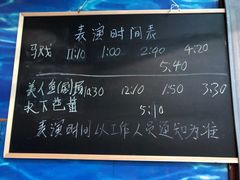 表演时间表
马戏 11:10 1:00 2:40 4:20
5:40
美人鱼(园)厅 10:30 12:10 1:50 3:30
水下芭蕾 5:10
表演时间以工作人员通知为准